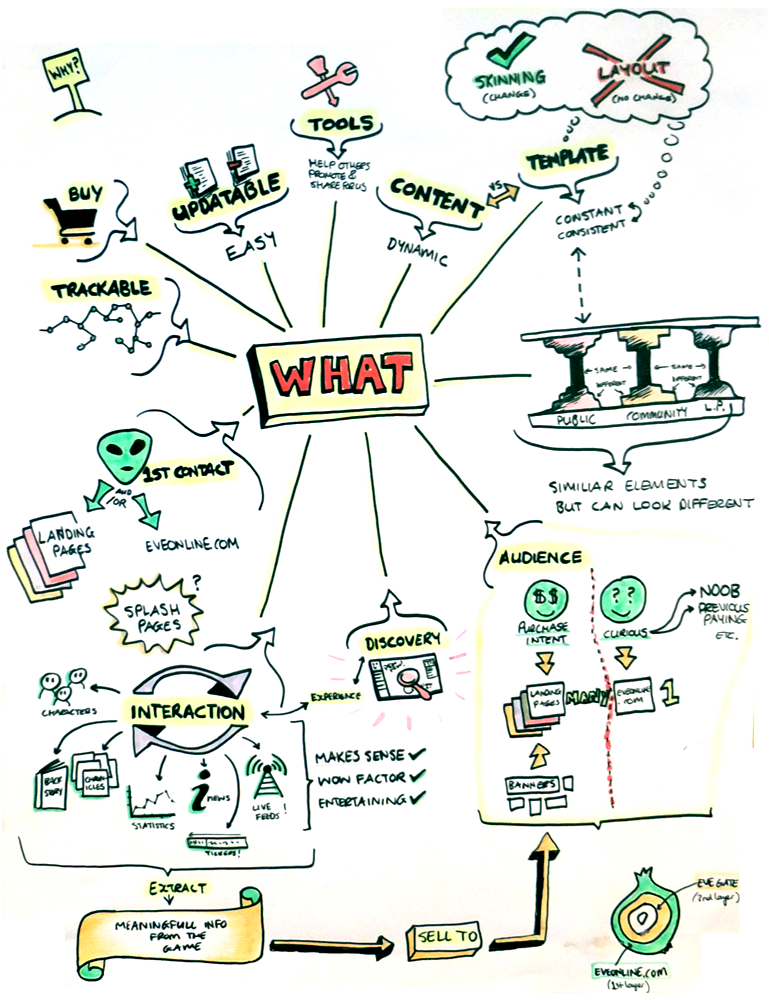 WHY?
SKINNING
(CHANGE)
LAYOUT
(NO CHANGE)
TOOLS
HELP OTHERS
PROMOTE &
SHARE FOR US
TEMPLATE
CONSTANT
CONSISTENT
BUY
UPDATABLE
EASY
CONTENT
VS
DYNAMIC
TRACKABLE
WHAT
SAME
DIFFERENT
SAME
DIFFERENT
PUBLIC
COMMUNITY
L.P.
SIMILIAR ELEMENTS
BUT CAN LOOK DIFFERENT
1ST CONTACT
AND
/OR
LANDING
PAGES
EVEONLINE.COM
SPLASH
PAGES
?
AUDIENCE
$$
PURCHASE
INTENT
??
CURIOUS
NOOB
PREVIOUS
PAYING
ETC.
LANDING
PAGES
MANY
EVEONLINE
.COM
1
BANNERS
DISCOVERY
EXPERIENCE
CHARACTERS
INTERACTION
BACK
STORY
CHRON
ICLES
STATISTICS
i
NEWS
LIVE
FEEDS!
TICKERS!
MAKES SENSE
WOW FACTOR
ENTERTAINING
EXTRACT
MEANINGFULL INFO
FROM THE
GAME
SELL TO
EVE GATE
(2nd layer)
EVEONLINE.COM
(1st layer)